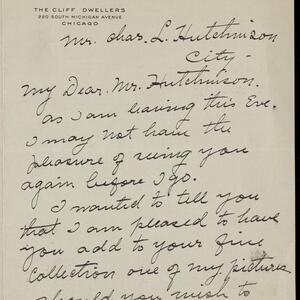 THE CLIFF DWELLERS
220 SOUTH MICHIGAN AVENUE
CHICAGO
Mr. Chas. L. Hutchinson
City -
My Dear Mr. Hutchinson.
As I am leaving this Eve.
I may not have the
pleasure of seeing you
again before I go.
I wanted to tell you
that I am pleased to have
you add to your fine
collection one of my pictures
should you wish to